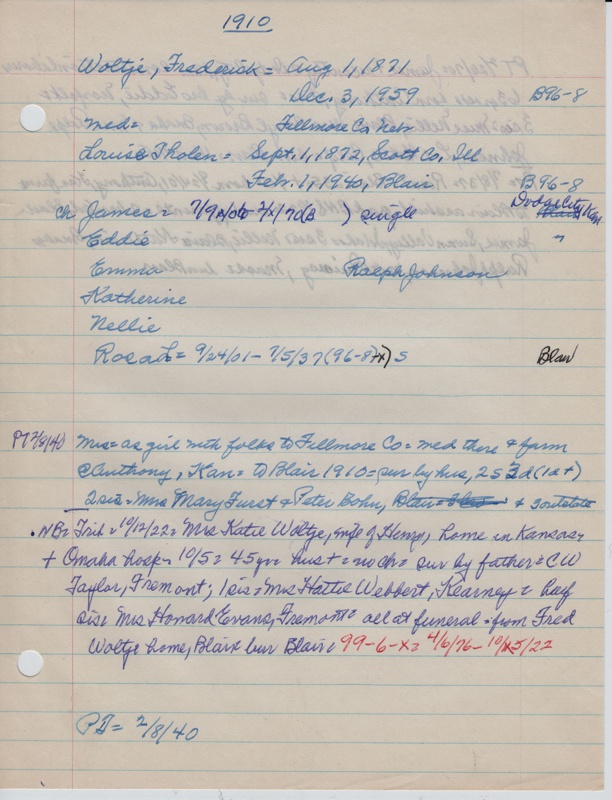 1910
Woltje, Frederick = Aug 1, 1871
Dec. 3, 1959 B96-8
Med = Fillmore Co, Nebr
Louise Tholen = Sept. 1, 1872, Scott Co. Ill
Feb. 1, 1940, Blair B96-8
ch James = single Dodge City Kan
Eddie "
Emma Ralph Johnson
Katherine
Nellie
Rosa = 9/24/01 - 7/5/37 (96-8 ) S Blair
PT 2/8/40 Mrs = as girl with folks to Fillmore Co = med there & farm
@ Anthony, Kan = to Blair 1910 = sur by hus, 2 s 3 d (1st)
2 sis = Mrs Mary Furst & Peter Bohn, & 3 outstate
NB = Trib = 10/12/22 = Mrs Katie Woltje, wife of Henry, home in Kansas
+ Omaha hosp 10/5 = 45 yr = hus + = no ch = sur by father = CW
Taylor, Fremont; 1 sis = Mrs Hattie Webbert, Kearney = half
sis = Mrs Howard Evans, Fremont = all at funeral = from Fred
Woltje home, Blair bur Blair = 99-6-X = 4/6/76 - 10/5/22
PT = 2/8/40